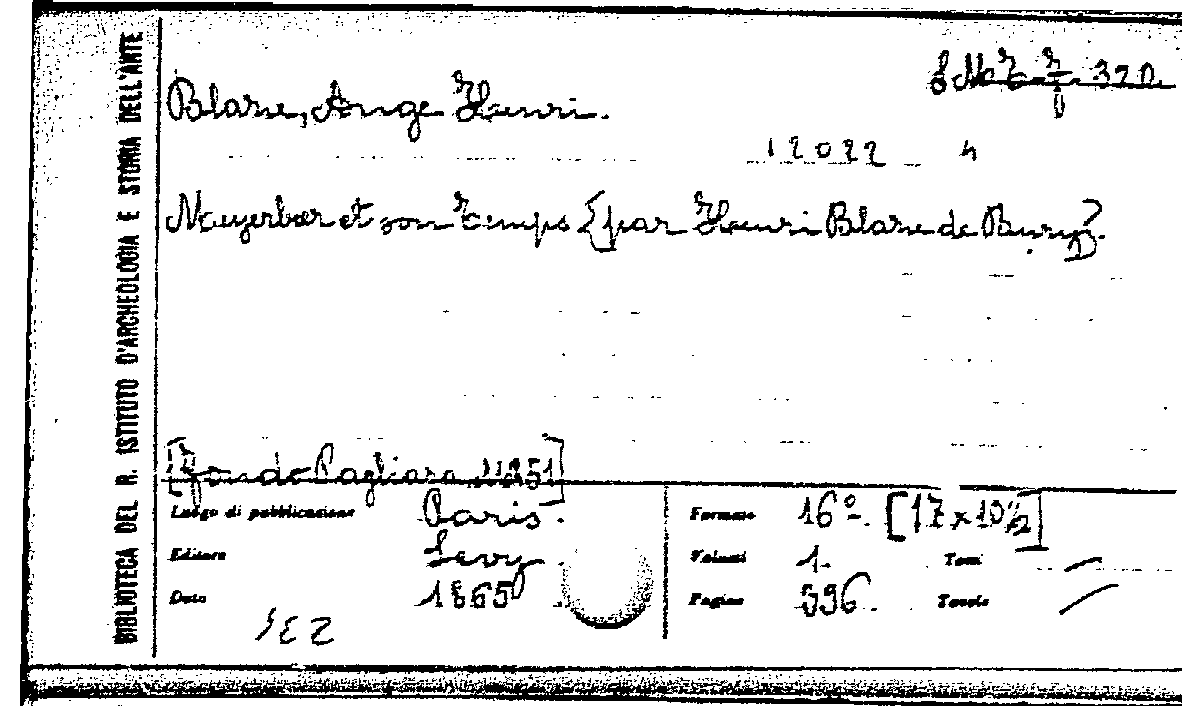 BIBLIOTECA DEL R. ISTITUTO D'ARCHEOLOGIA E STORIA DELL'ARTE
320.
Blaze, Ange Henri.
12022
Meyerbeer et son temps [par Henri Blaze de Bury].
[Fondo Pagliara 11251]
Luogo di pubblicazione Paris.
Editore Levy.
Data 1865
Formato 16º. [17 x 10½]
Volumi 1. Tomi /
Pagine 396. Tavole /